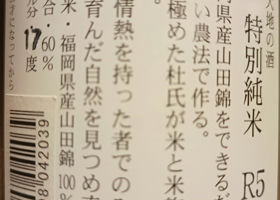 大地の酒
特別純米 R5
岡県産山田錦をできるだ
い農法で作る。
極めた杜氏が米と米麹
情熱を持った者でのみ
育んだ自然を見つめ直
米・福岡県産山田錦100%
合・60%
ル分 17度
歳になってから
8042039